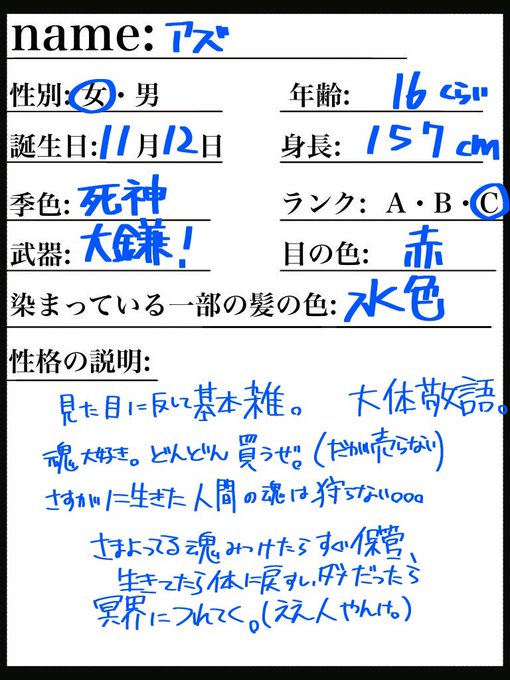 name: アズ
性別: 女・男 年齢: 16くらい
誕生日: 11月12日 身長: 157cm
季色: 死神 ランク: A・B・C
武器: 大鎌! 目の色: 赤
染まっている一部の髪の色: 水色
性格の説明:
見た目に反して基本雑。 大体敬語。
魂大好き。どんどん買うぜ。(だが売らない)
さすがに生きた人間の魂は狩らない。。。
さまよってる魂みつけたらすぐ保管、
生きてたら体に戻すし、ダメだったら
冥界につれてく。(ええ人やんけ。)